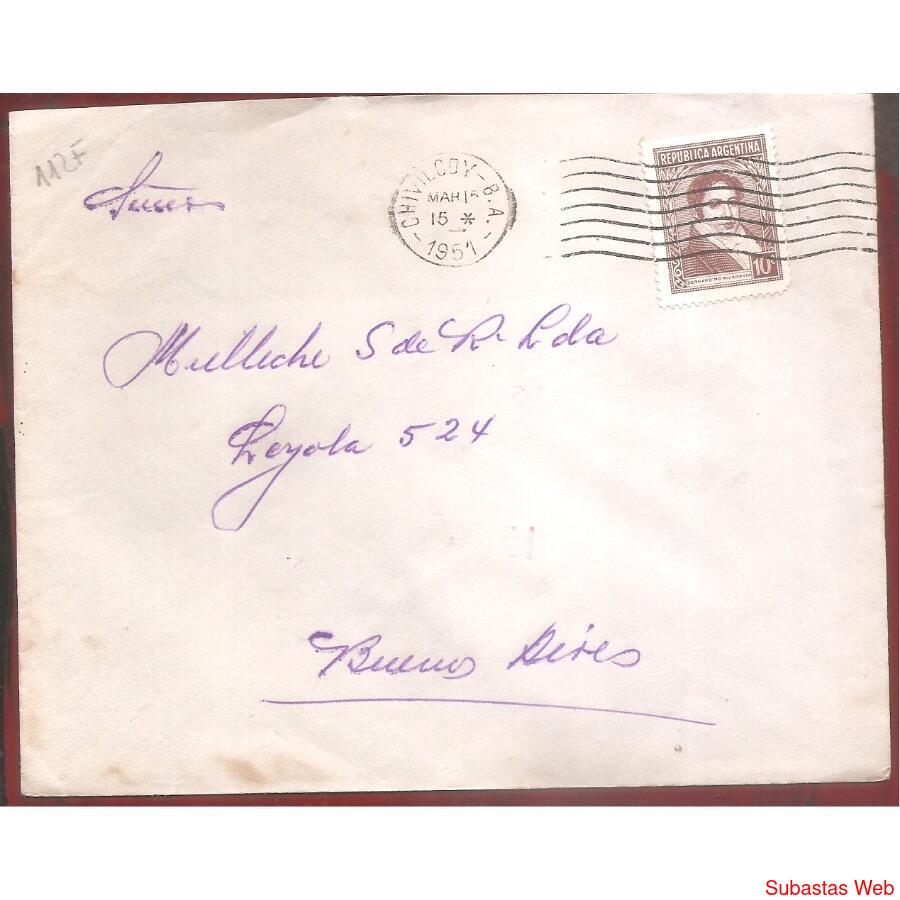 112F
Señores
CHIVILCOY - B.A. -
MAR 15
15 *
1951
REPUBLICA ARGENTINA
10c
BERNARDINO RIVADAVIA
Mulleche S de R. Lda
Loyola 524
Buenos Aires
Subastas Web